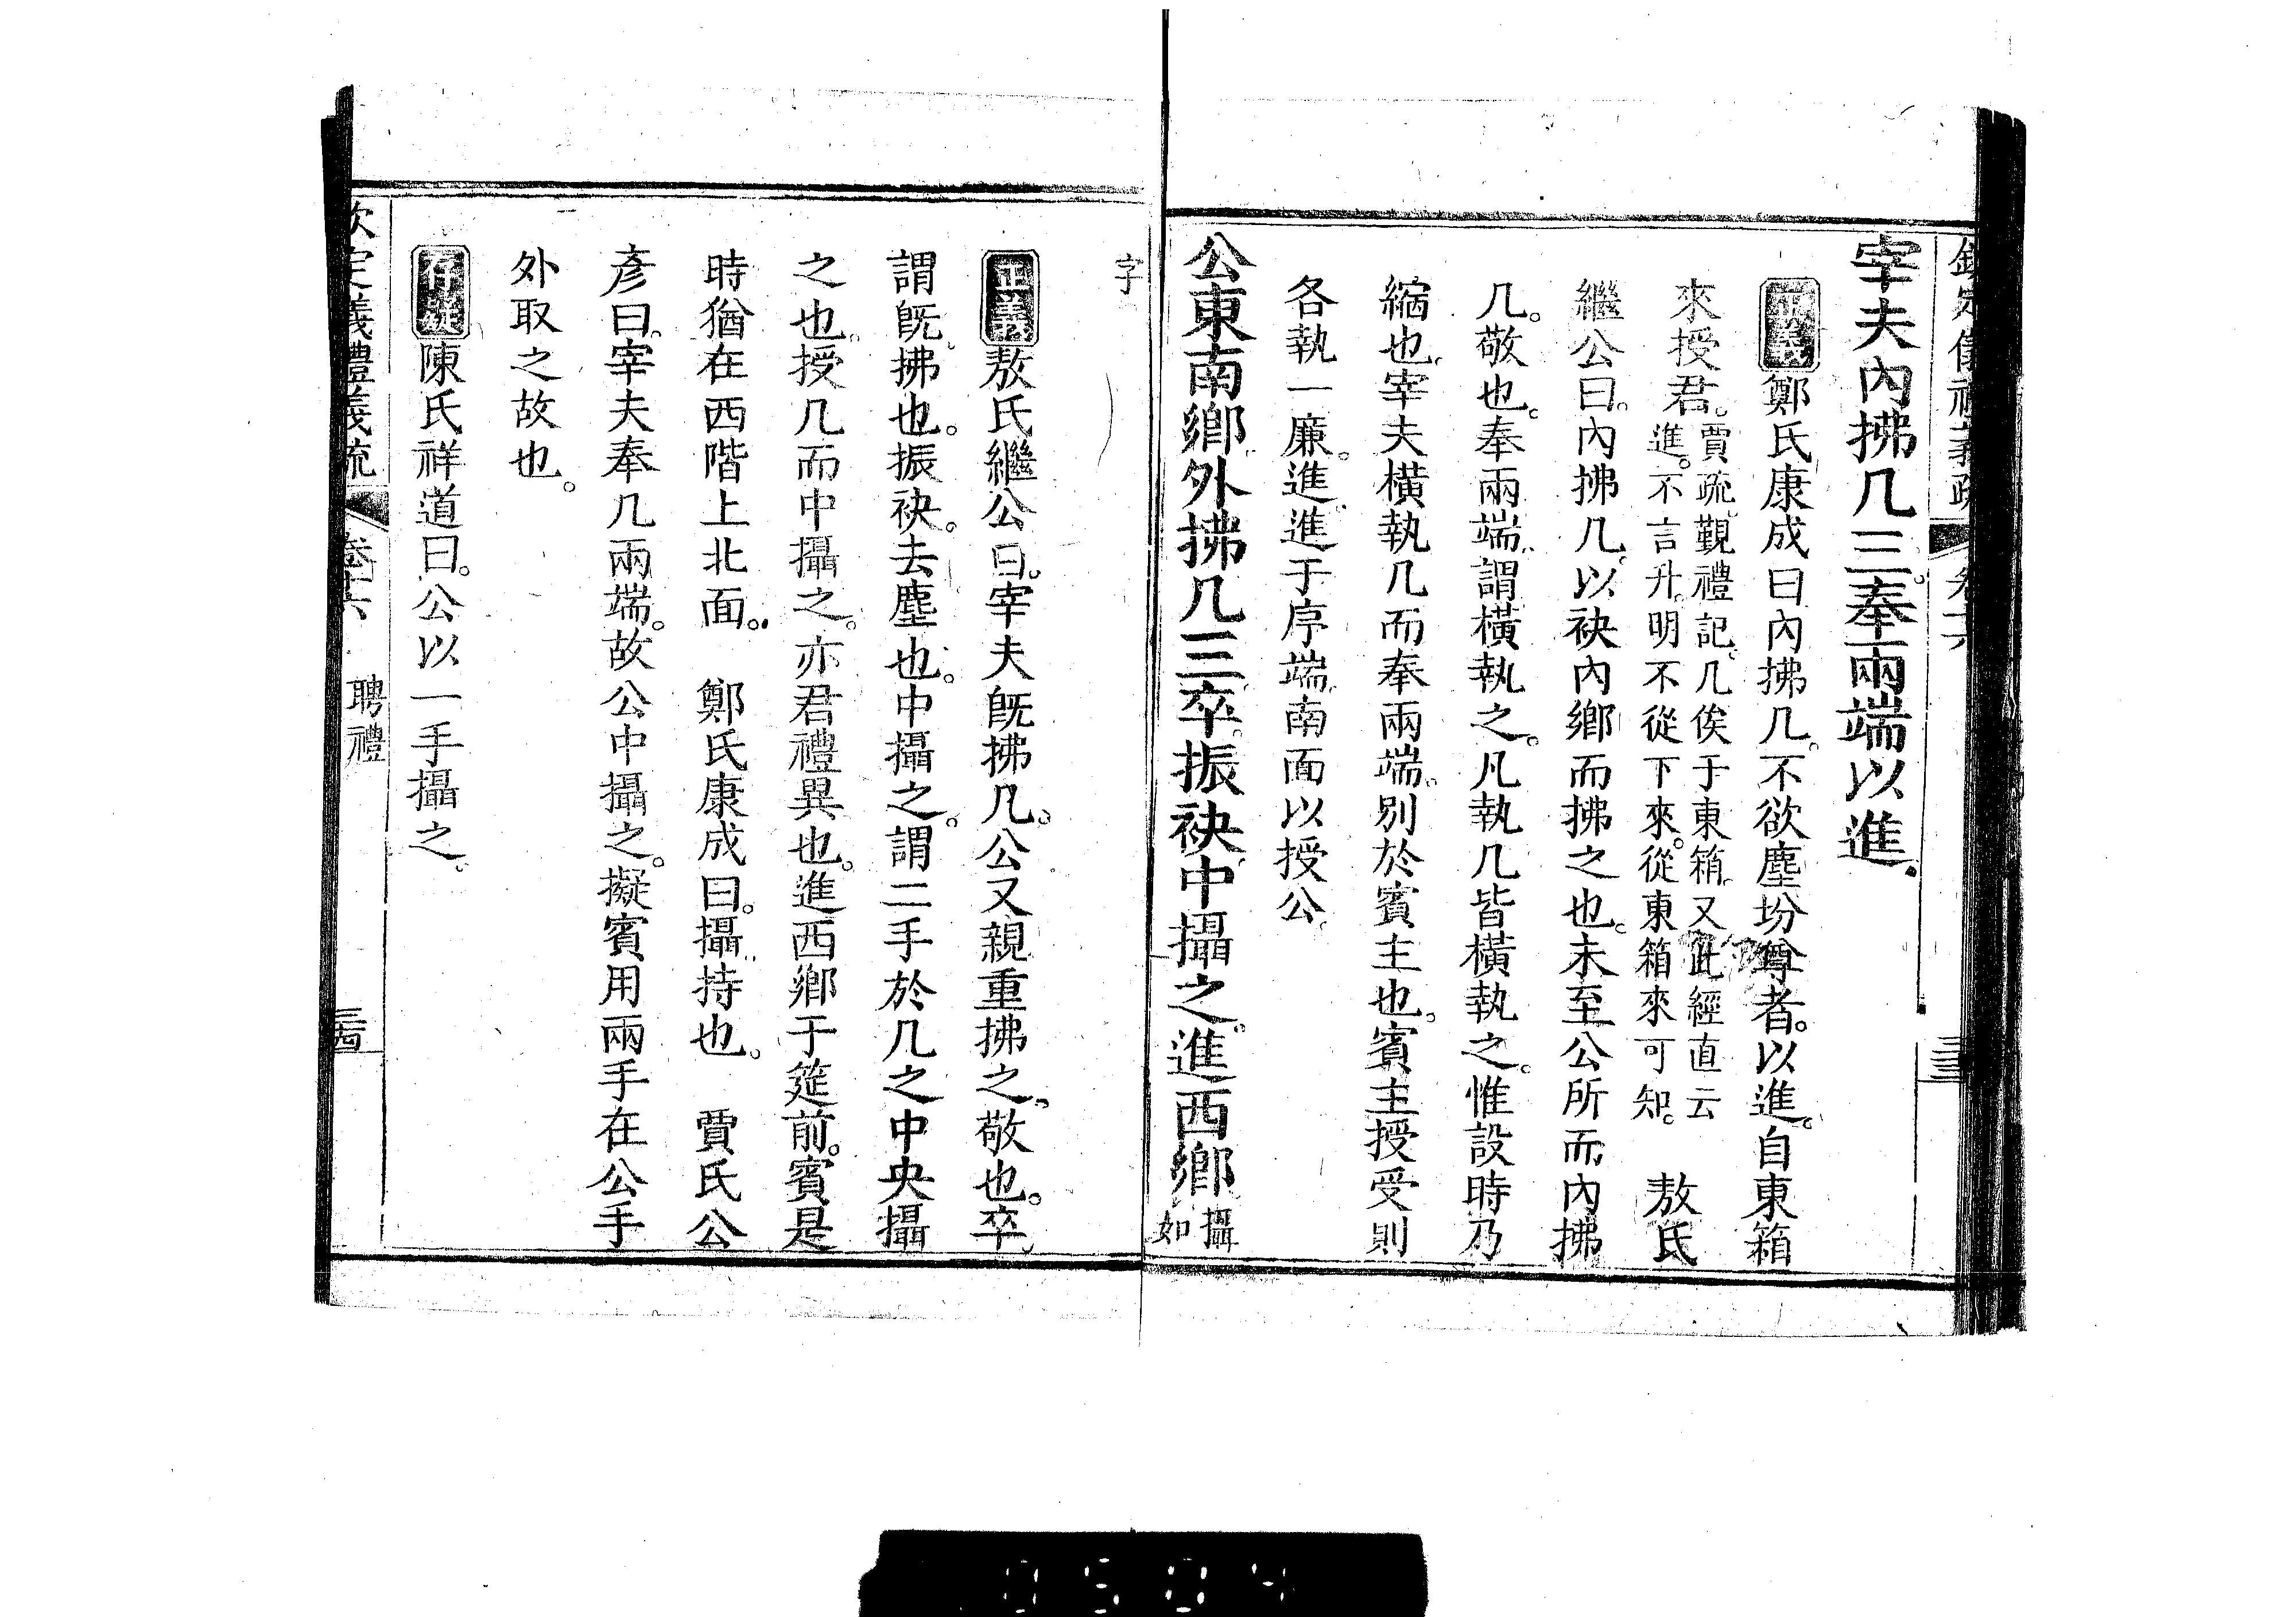 欽定儀禮義疏 卷十六 三三
宰夫內拂几三奉兩端以進
正義鄭氏康成曰內拂几。不欲塵坋尊者。以進。自東箱
來授君。賈疏。覲禮記。几俟于東箱。又此經直云進。不言升。明不從下來。從東箱來可知。 敖氏
繼公曰。內拂几。以袂內鄉而拂之也。未至公所而內拂
几。敬也。奉兩端。謂橫執之。凡執几皆橫執之。惟設時乃
縮也。宰夫橫執几而奉兩端。別於賓主也。賓主授受則
各執一廉。進。進于序端。南面以授公。
公東南鄉外拂几三卒振袂中攝之進西鄉 攝如
字
正義敖氏繼公曰。宰夫旣拂几。公又親重拂之。敬也。卒
謂旣拂也。振袂。去塵也。中攝之。謂二手於几之中央攝
之也。授几而中攝之。亦君禮異也。進西鄉于筵前。賓是
時猶在西階上北面。 鄭氏康成曰。攝。持也。 賈氏公
彥曰。宰夫奉几兩端。故公中攝之。擬賓用兩手在公手
外取之故也。
存疑陳氏祥道曰。公以一手攝之。
欽定義禮義疏 卷十六 聘禮 三四
0504